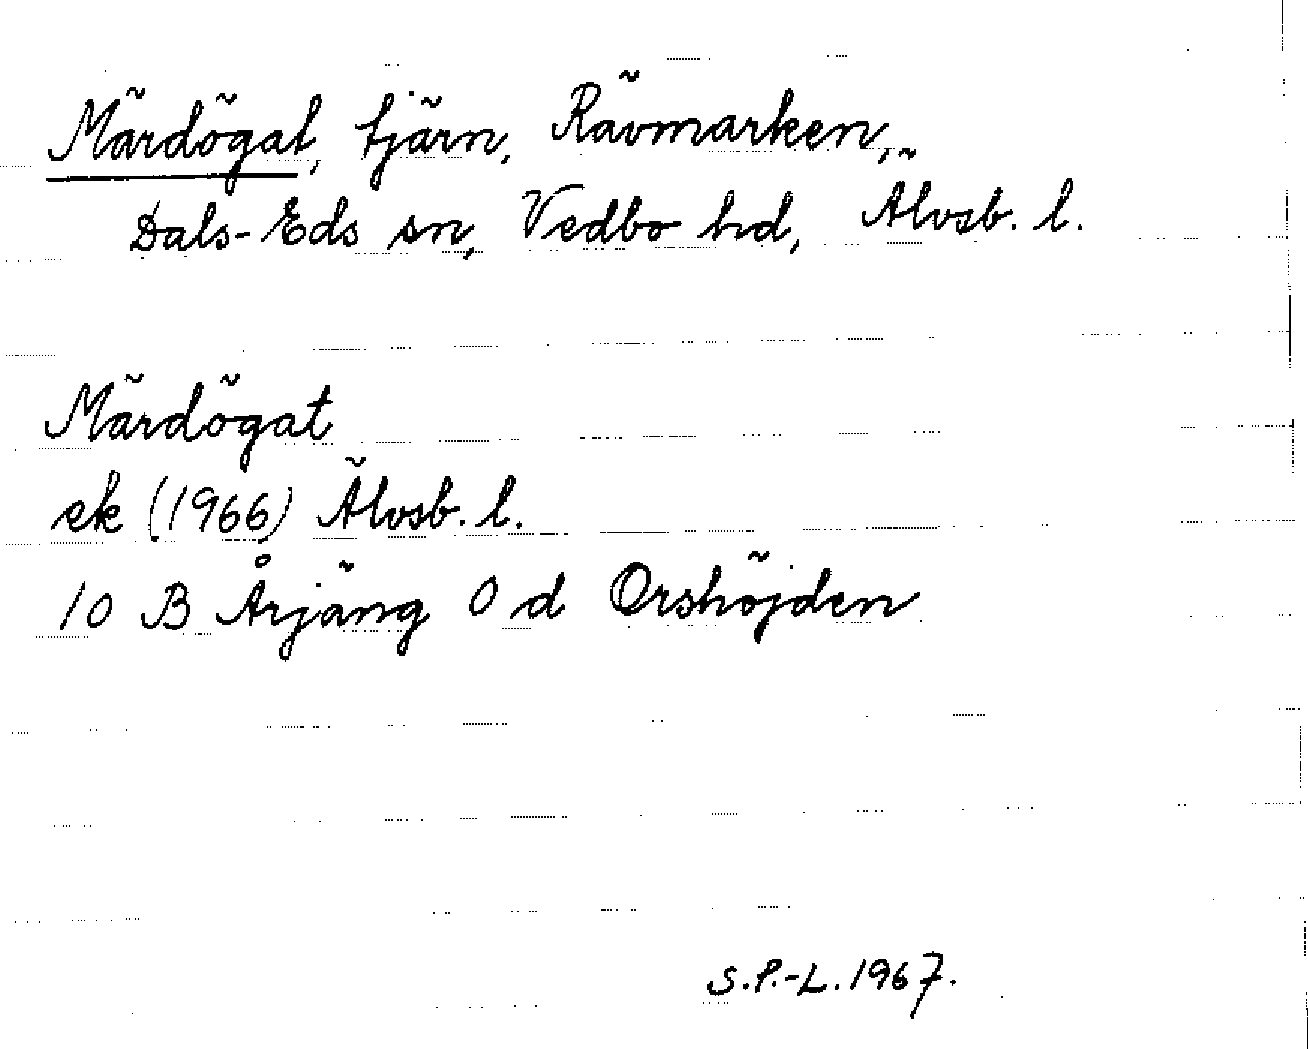 Märdögat, tjärn, Rävmarken,
Dals-Eds sn, Vedbo hd, Älvsb. l.
Märdögat
ek (1966) Älvsb. l.
10 B Årjäng 0 d Orshöjden
S.P.-L. 1967.